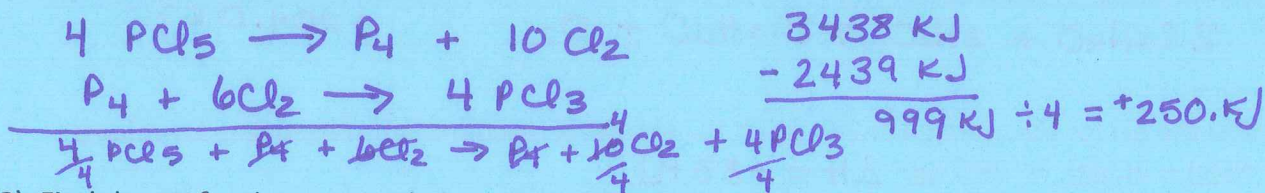 4 PCl5 → P4 + 10 Cl2 3438 KJ
P4 + 6Cl2 → 4 PCl3 - 2439 KJ
4/4 PCl5 + P4 + 6Cl2 → P4 + 10/4 4 Cl2 + 4PCl3/4 999 KJ ÷ 4 = +250. KJ